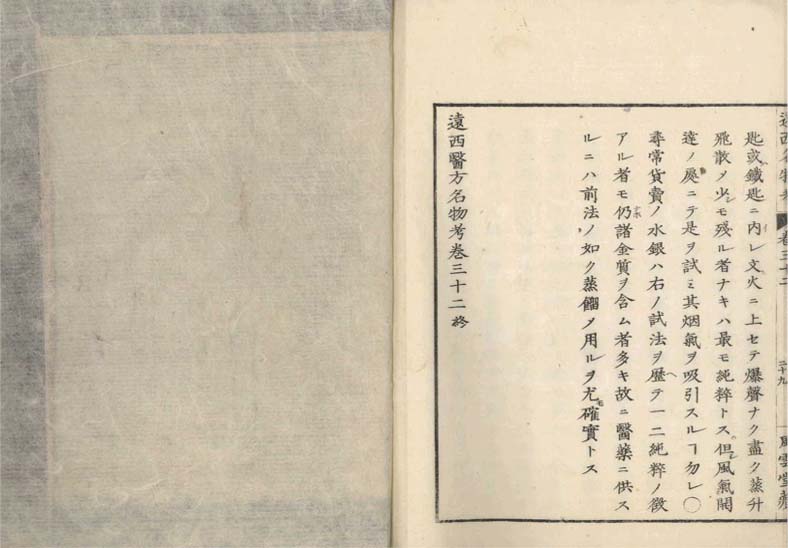 遠西名物考 卷三十二 二十九 風雲堂藏
匙或鐵匙ニ内レ文火ニ上セテ爆聲ナク盡ク蒸升
飛散〆少モ殘ル者ナキハ最モ純粹トス但風氣開
達ノ處ニテ是ヲ試ミ其烟氣ヲ吸引スルヿ勿レ〇
尋常貨賣ノ水銀ハ右ノ試法ヲ歴テ一二純粹ノ徴
アル者モ仍諸金質ヲ含ム者多キ故ニ醫藥ニ供ス
ルニハ前法ノ如ク蒸餾〆用ルヲ尤確實トス
遠西醫方名物考卷三十二終